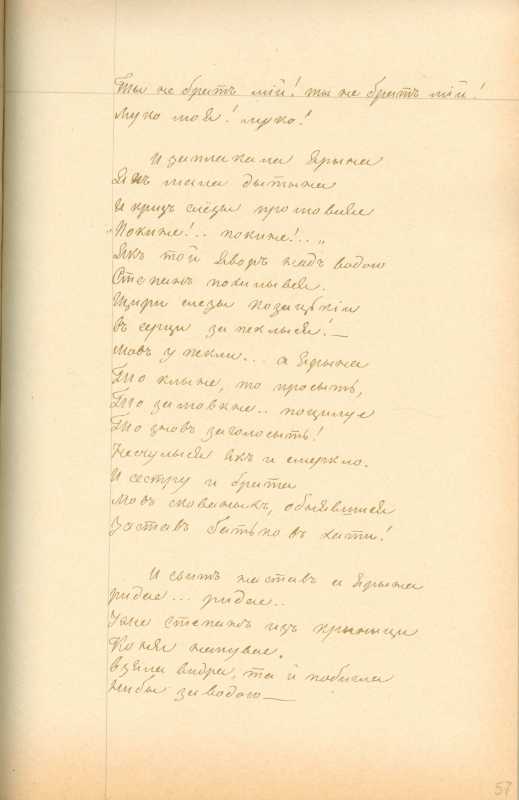 Ты не братъ мій! ты не братъ мій!
Муко моя! муко!
И заплакала Ярына
Якъ мала дытына
И кризь слёзы промовляе
„Покине!.. покине!..„
Якъ той Яворъ надъ водою
Степанъ похилывся.
Щири слезы козацькіи
Въ серци запеклыся! —
Мовъ у пекли... а Ярына
То клыне, то просыть,
То замовкне.. поцилуе
То зновъ заголосыть!
Нечулыся якъ и смеркло.
И сестру и брата
Мовъ скованыхъ, обнявшися
Заставъ батько въ хати!
И свитъ наставъ а Ярына
рыдае... рыдае..
Уже Степанъ изъ крыныци
Коня напувае.
Взяла видра, та й побигла
Ниби за водою —
57